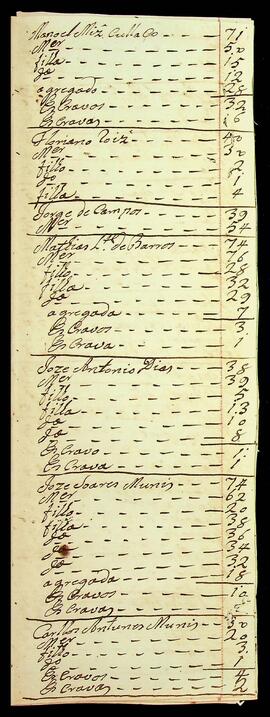 Manoel Miz Cullaço — 71
Mer — 50
filla — 15
Ja — 12
agregado — 28
Escravos — 32
Escravas — 6
Floriano Roiz — 40
Mer — 30
fillo — 2
Jo — 1
filla — 4
Jorge de Campos — 39
Mer — 54
Mathias Lte de Barros — 74
Mer — 76
fillo — 28
filla — 32
Ja — 29
agregada — 7
Escravos — 3
Escrava — 1
Joze Antonio Dias — 38
Mer — 39
fillo — 5
filla — 13
Ja — 10
Ja — 8
Escravo — 1
Escrava — 1
Joze Soares Munis — 74
Mer — 62
fillo — 20
filla — 38
Ja — 36
Ja — 34
Ja — 32
agregada — 18
Escravos — 10
Escravas — 7
Carllos Antunes Munis — 30
Mer — 20
fillo — 3
Jo — 1
Escravos — 4
Escravas — 2